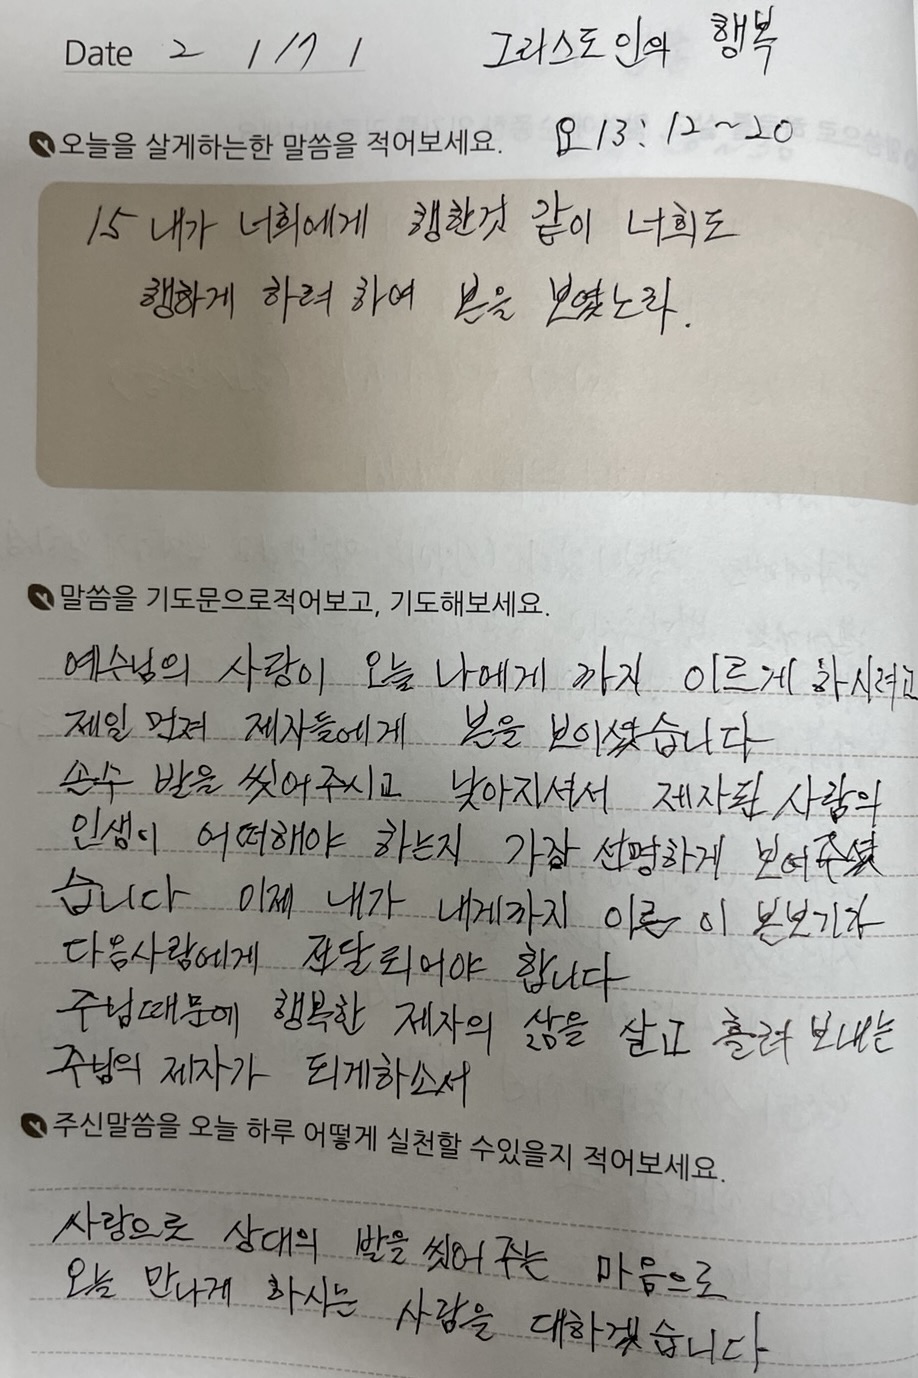 Date 2 1/7 1 그리스도인의 행복
오늘을 살게하는한 말씀을 적어보세요. 요13:12~20
15 내가 너희에게 행한것 같이 너희도
행하게 하려 하여 본을 보였노라.
말씀을 기도문으로적어보고, 기도해보세요.
예수님의 사랑이 오늘 나에게 까지 이르게 하시려고
제일 먼저 제자들에게 본을 보이셨습니다
손수 발을 씻어주시고 낮아지셔서 제자된 사람의
인생이 어떠해야 하는지 가장 선명하게 보여주셨
습니다 이제 내가 내게까지 이른 이 본보기가
다음사람에게 전달되어야 합니다
주님때문에 행복한 제자의 삶을 살고 흘려 보내는
주님의 제자가 되게하소서
주신말씀을 오늘 하루 어떻게 실천할 수있을지 적어보세요.
사랑으로 상대의 발을 씻어 주는 마음으로
오늘 만나게 하시는 사람을 대하겠습니다